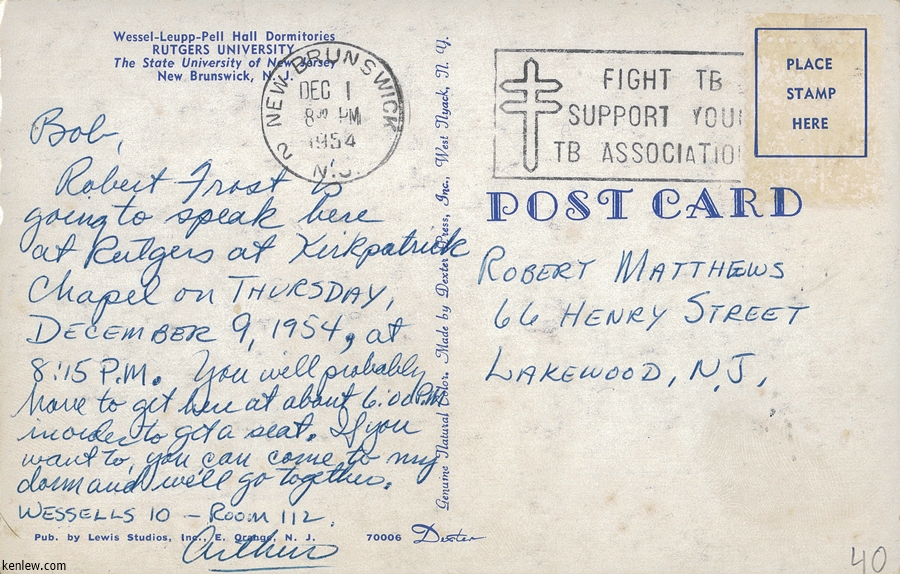 Wessel-Leupp-Pell Hall Dormitories
RUTGERS UNIVERSITY
The State University of New Jersey
New Brunswick, N. J.
2 NEW BRUNSWICK N.J.
DEC 1
8 00 PM
1954
FIGHT TB
SUPPORT YOUR
TB ASSOCIATION
PLACE
STAMP
HERE
Bob,
Robert Frost is
going to speak here
at Rutgers at Kirkpatrick
Chapel on THURSDAY,
DECEMBER 9, 1954, at
8:15 P.M. You will probably
have to get here at about 6:00 P.M.
in order to get a seat. If you
want to, you can come to my
dorm and we'll go together.
WESSELLS 10 - ROOM 112.
Arthur
Pub. by Lewis Studios, Inc., E. Orange, N. J.
70006 Dexter
Genuine Natural Color. Made by Dexter Press, Inc., West Nyack, N. Y.
POST CARD
ROBERT MATTHEWS
66 HENRY STREET
LAKEWOOD, N.J.,
40
kenlew.com